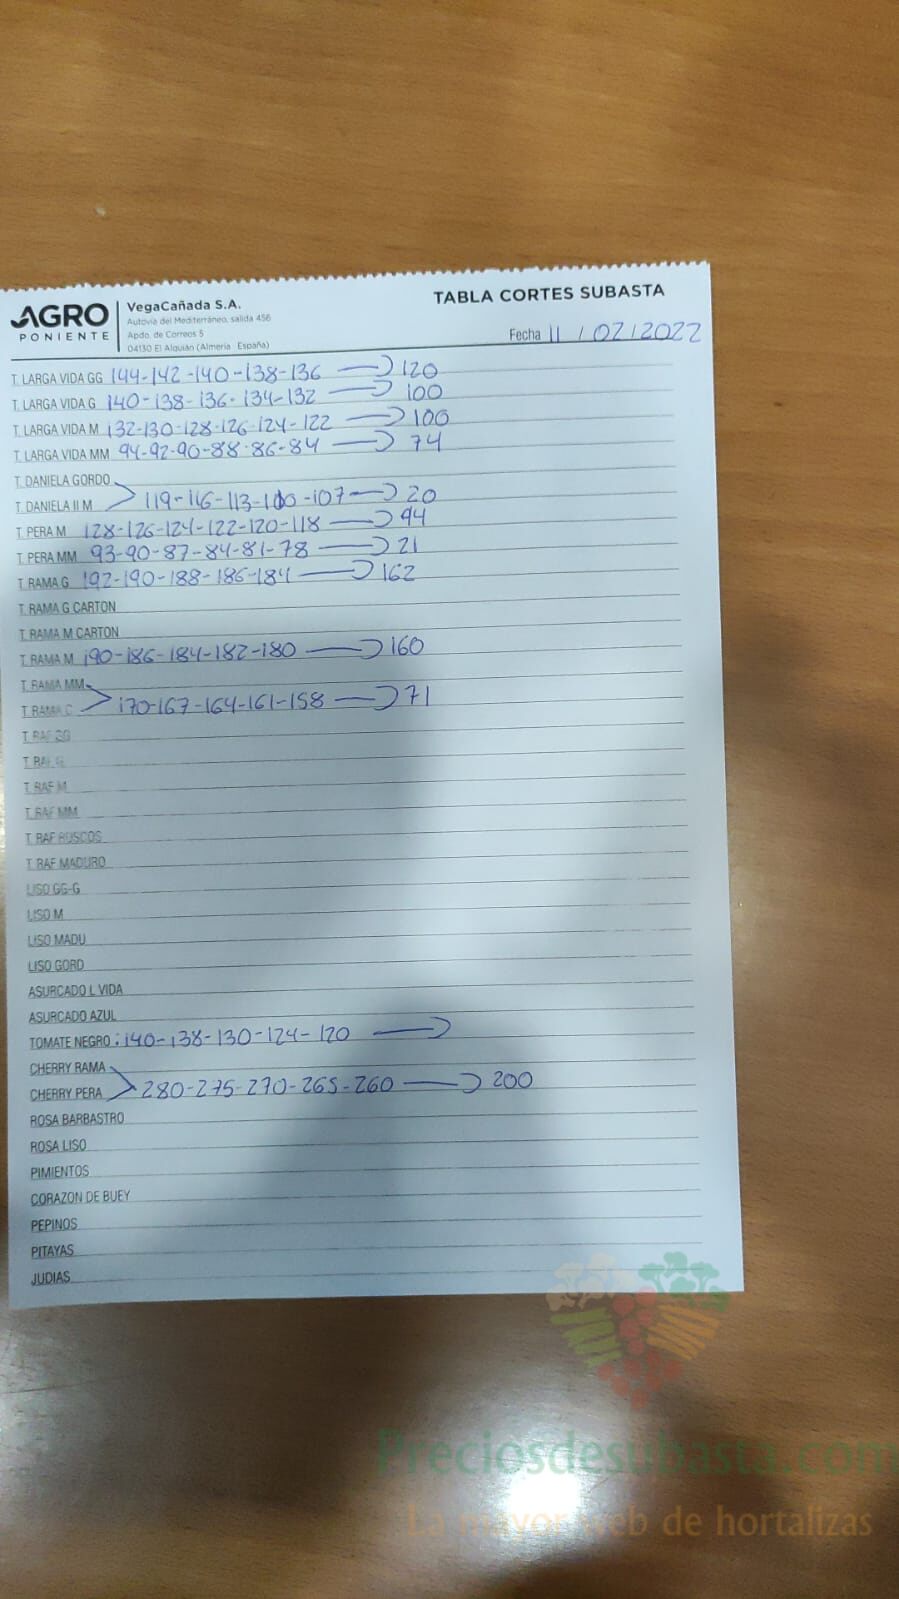 AGRO
PONIENTE
VegaCañada S.A.
Autovía del Mediterráneo, salida 456
Apdo. de Correos 5
04130 El Alquián (Almería España)
TABLA CORTES SUBASTA
Fecha 11 / 02 / 2022
T. LARGA VIDA GG 144-142-140-138-136 → 120
T. LARGA VIDA G 140-138-136-134-132 → 100
T. LARGA VIDA M 132-130-128-126-124-122 → 100
T. LARGA VIDA MM 94-92-90-88-86-84 → 74
T. DANIELA GORDO
T. DANIELA II M > 119-116-113-110-107 → 20
T. PERA M 128-126-124-122-120-118 → 94
T. PERA MM 93-90-87-84-81-78 → 21
T. RAMA G 192-190-188-186-184 → 162
T. RAMA G CARTON
T. RAMA M CARTON
T. RAMA M 190-186-184-182-180 → 160
T. RAMA MM
T. RAMA C > 170-167-164-161-158 → 71
T. RAF GG
T. RAF G
T. RAF M
T. RAF MM
T. RAF ROSCOS
T. RAF MADURO
LISO GG-G
LISO M
LISO MADU
LISO GORD
ASURCADO L VIDA
ASURCADO AZUL
TOMATE NEGRO: 140-138-130-124-120 →
CHERRY RAMA
CHERRY PERA > 280-275-270-265-260 → 200
ROSA BARBASTRO
ROSA LISO
PIMIENTOS
CORAZON DE BUEY
PEPINOS
PITAYAS
JUDIAS
Preciosdesubasta.com
La mayor web de hortalizas